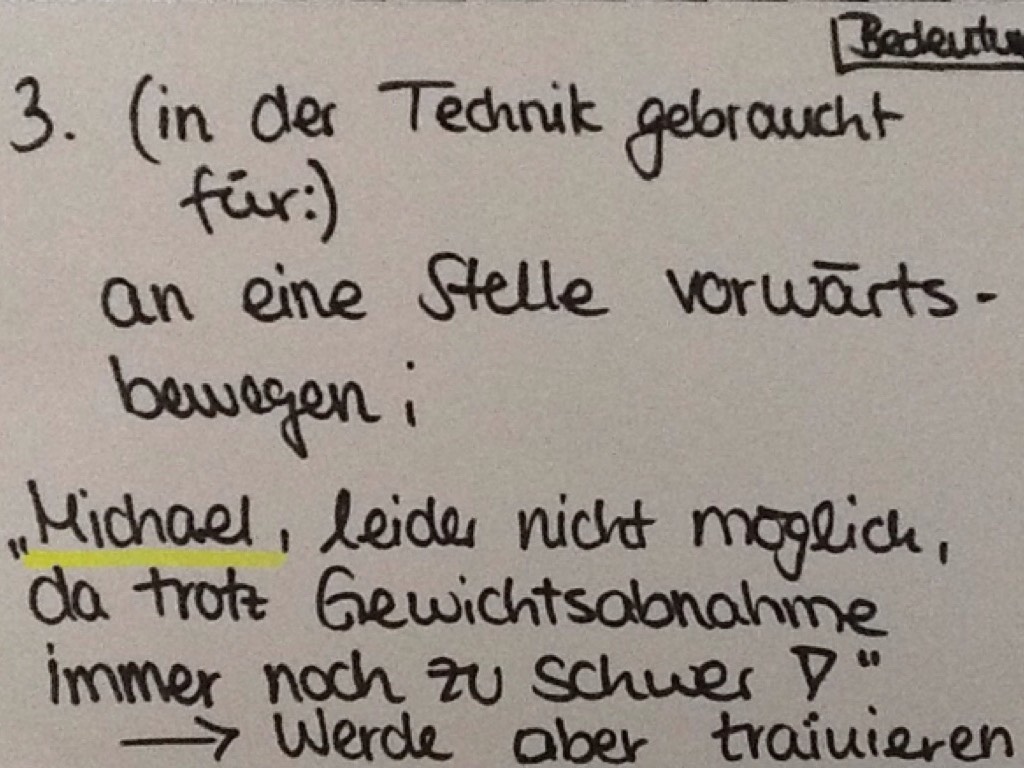 Bedeutun
3. (in der Technik gebraucht
für:)
an eine Stelle vorwärts-
bewegen;
„Michael, leider nicht möglich,
da trotz Gewichtsabnahme
immer noch zu schwer!"
→ Werde aber trainieren